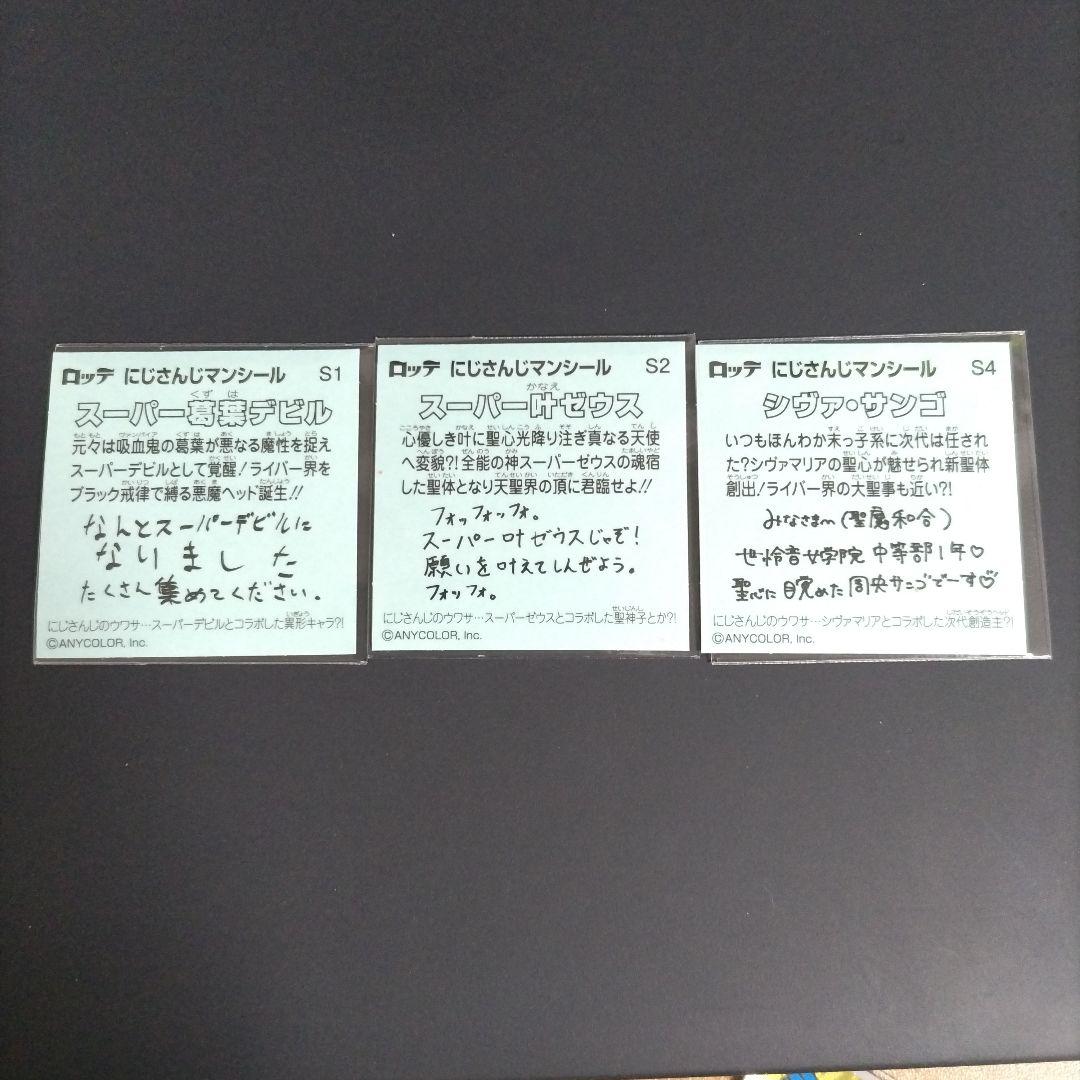 ロッテ にじさんじマンシール S1
くずは
スーパー葛葉デビル
元々は吸血鬼の葛葉が悪なる魔性を捉え
スーパーデビルとして覚醒!ライバー界を
ブラック戒律で縛る悪魔ヘッド誕生!!
なんとスーパーデビルに
なりました
たくさん集めてください。
にじさんじのウワサ…スーパーデビルとコラボした異形キャラ?!
©ANYCOLOR, Inc.
ロッテ にじさんじマンシール S2
かなえ
スーパー叶ゼウス
心優しき叶に聖心光降り注ぎ真なる天使
へ変貌?!全能の神スーパーゼウスの魂宿
した聖体となり天聖界の頂に君臨せよ!!
フォッフォッフォ。
スーパー叶ゼウスじゃぞ!
願いを叶えてしんぜよう。
フォッフォ。
にじさんじのウワサ…スーパーゼウスとコラボした聖神子とか?!
©ANYCOLOR, Inc.
ロッテ にじさんじマンシール S4
シヴァ・サンゴ
いつもほんわか末っ子系に次代は任され
た?シヴァマリアの聖心が魅せられ新聖体
創出!ライバー界の大聖事も近い?!
みなさまへ(聖魔和合)
世怜音女学院 中等部1年♡
聖心に目覚めた 周央サンゴでーす♡
にじさんじのウワサ…シヴァマリアとコラボした次代創造主?!
©ANYCOLOR, Inc.